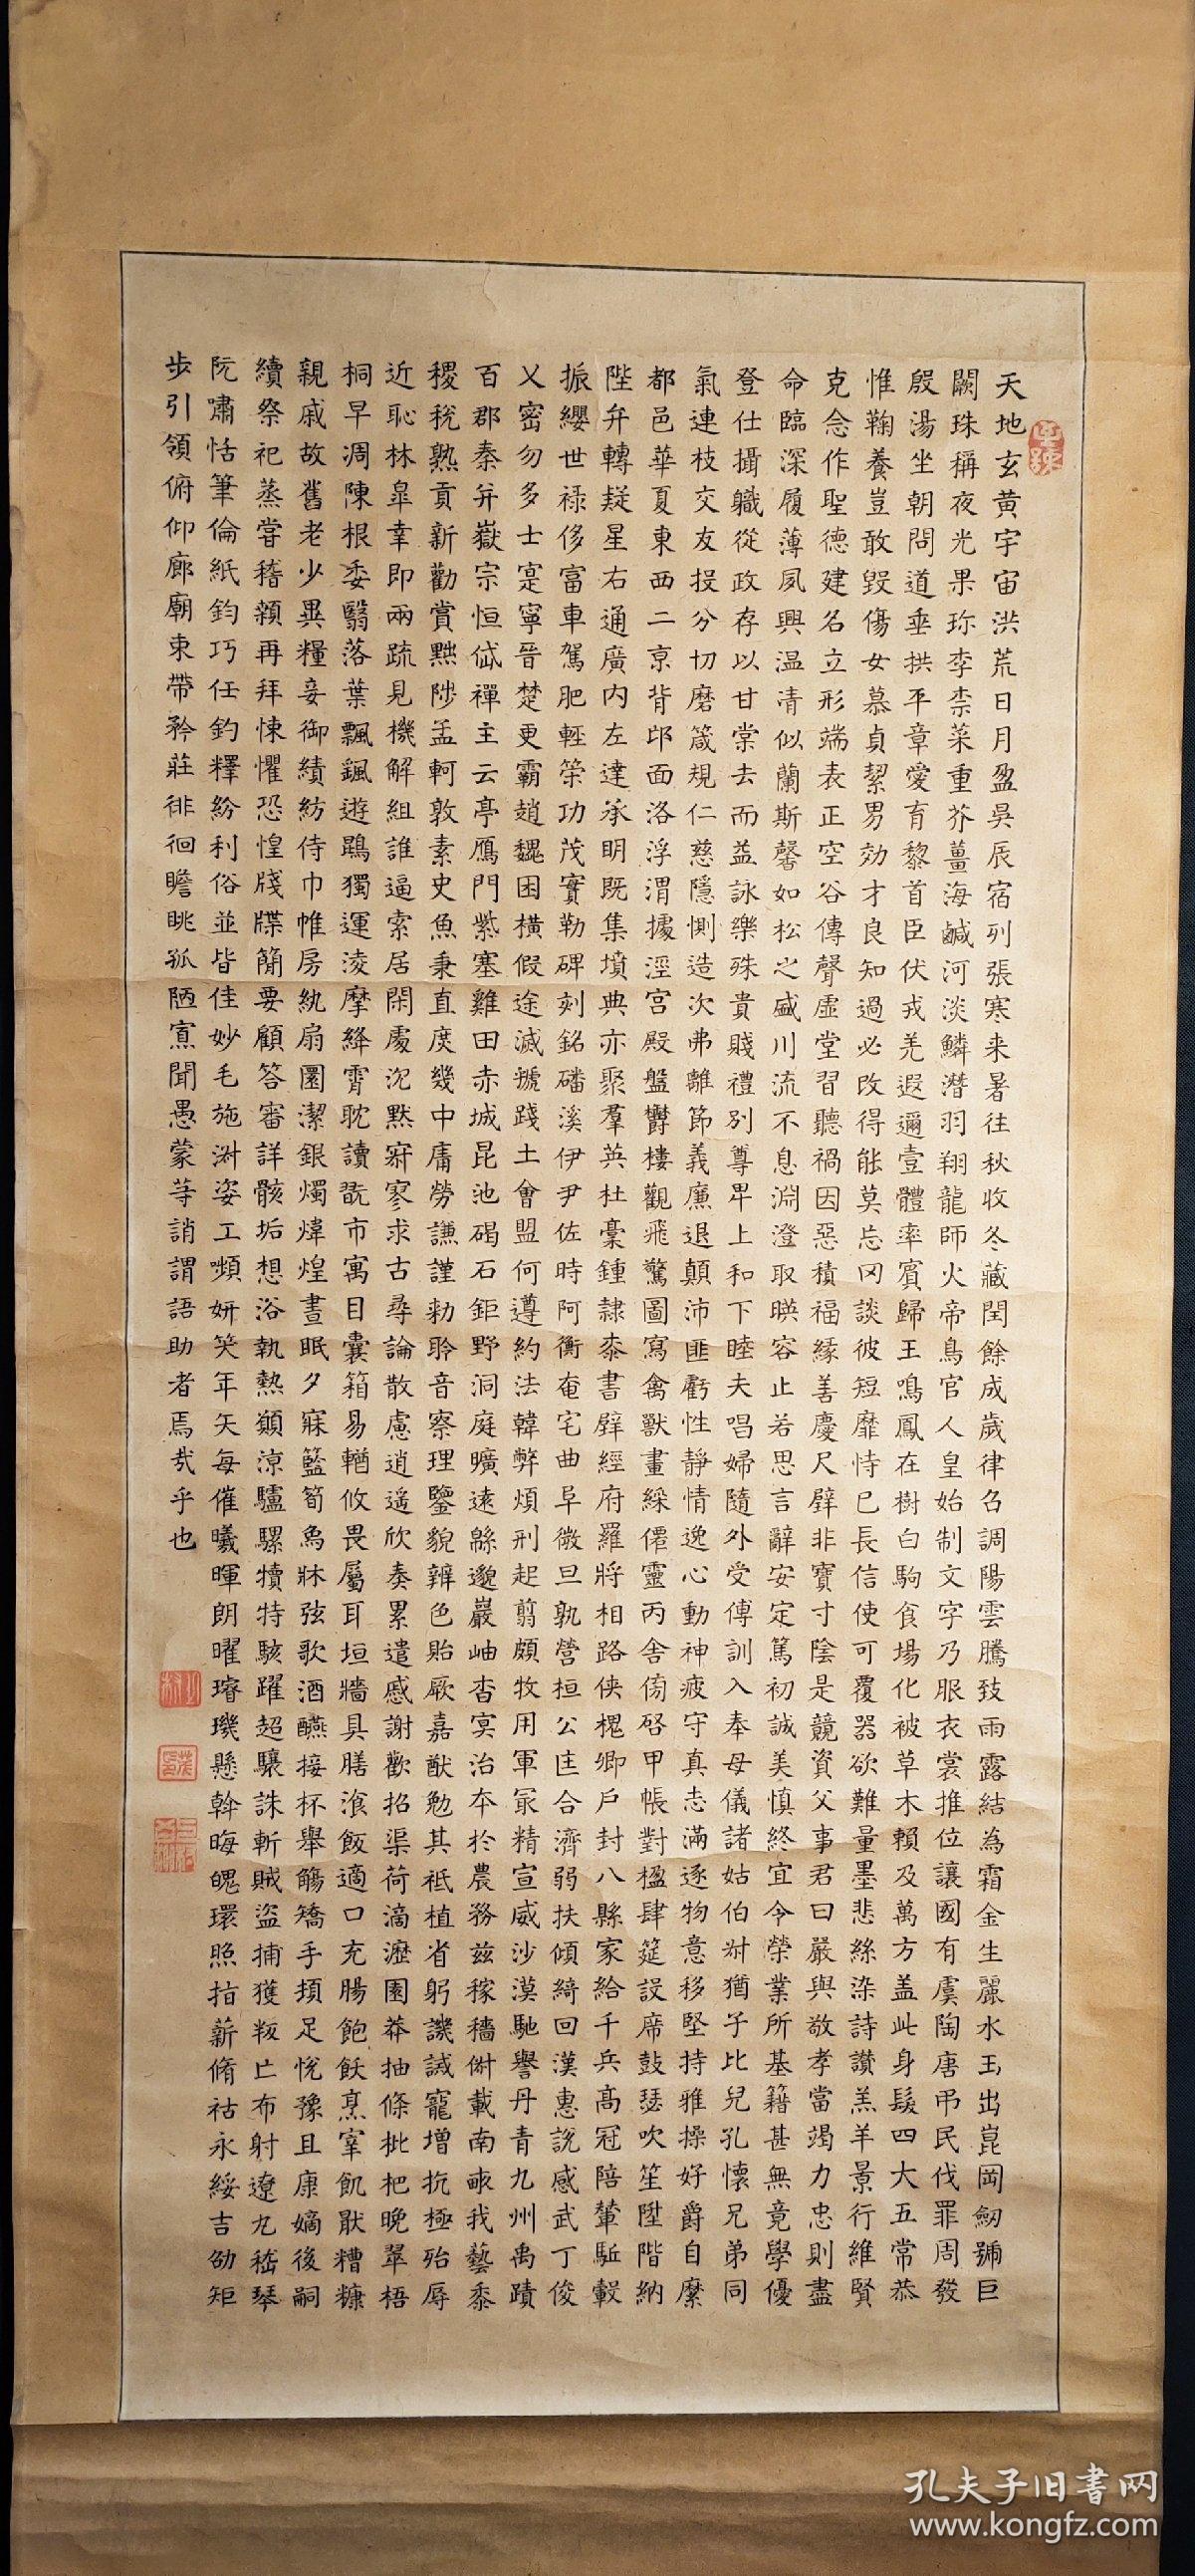 天地玄黄宇宙洪荒日月盈昃辰宿列張寒来暑往秋收冬藏閏餘成歲律呂調陽雲騰致雨露結為霜金生麗水玉出崑岡劒號巨
闕珠稱夜光果珍李柰菜重芥薑海鹹河淡鱗潛羽翔龍師火帝鳥官人皇始制文字乃服衣裳推位讓國有虞陶唐弔民伐罪周發
殷湯坐朝問道垂拱平章愛育黎首臣伏戎羌遐邇壹體率賓歸王鳴鳳在樹白駒食場化被草木賴及萬方盖此身髮四大五常恭
惟鞠養豈敢毀傷女慕貞絜男効才良知過必改得能莫忘罔談彼短靡恃己長信使可覆器欲難量墨悲絲染詩讚羔羊景行維賢
克念作聖德建名立形端表正空谷傳聲虛堂習聽禍因惡積福緣善慶尺璧非寶寸陰是競資父事君曰嚴與敬孝當竭力忠則盡
命臨深履薄夙興温凊似蘭斯馨如松之盛川流不息淵澄取暎容止若思言辭安定篤初誠美慎終宜令榮業所基籍甚無竟學優
登仕攝職從政存以甘棠去而益詠樂殊貴賤禮別尊卑上和下睦夫唱婦隨外受傅訓入奉母儀諸姑伯叔猶子比兒孔懷兄弟同
氣連枝交友投分切磨箴規仁慈隱惻造次弗離節義廉退顛沛匪虧性靜情逸心動神疲守真志滿逐物意移堅持雅操好爵自縻
都邑華夏東西二京背邙面洛浮渭據涇宮殿盤鬱樓觀飛驚圖寫禽獸畫綵僊靈丙舍傍啓甲帳對楹肆筵設席鼓瑟吹笙陞階納
陛弁轉疑星右通廣内左達承明既集墳典亦聚羣英杜稾鍾隸桼書壁經府羅將相路俠槐卿户封八縣家給千兵高冠陪輦駈轂
振纓世禄侈富車駕肥輕策功茂實勒碑刻銘磻溪伊尹佐時阿衡奄宅曲阜微旦孰營桓公匡合濟弱扶傾綺回漢惠説感武丁俊
乂密勿多士寔寧晉楚更霸趙魏困橫假途滅虢踐土會盟何遵約法韓弊煩刑起翦頗牧用軍冣精宣威沙漠馳譽丹青九州禹蹟
百郡秦并嶽宗恒岱禪主云亭鴈門紫塞雞田赤城昆池碣石鉅野洞庭曠遠緜邈巖岫杳冥治本於農務兹稼穡俶載南畝我藝黍
稷稅熟貢新勸賞黜陟孟軻敦素史魚秉直庶幾中庸勞謙謹勑聆音察理鑒貌辨色貽厥嘉猷勉其祗植省躬譏誡寵增抗極殆辱
近恥林皋幸即兩疏見機解組誰逼索居閑處沉默寂寥求古尋論散慮逍遥欣奏累遣慼謝歡招渠荷滴瀝園莽抽條枇杷晚翠梧
桐早凋陳根委翳落葉飄颻遊鵾獨運淩摩絳霄耽讀翫市寓目囊箱易輶攸畏屬耳垣牆具膳飡飯適口充腸飽飫烹宰飢厭糟糠
親戚故舊老少異糧妾御績紡侍巾帷房紈扇圓潔銀燭煒煌晝眠夕寐籃筍象牀弦歌酒醼接杯舉觴矯手頓足悅豫且康嫡後嗣
續祭祀蒸嘗稽顙再拜悚懼恐惶牋牒簡要顧答審詳骸垢想浴執熱願涼驢騾犢特駭躍超驤誅斬賊盜捕獲叛亡布射遼丸嵇琴
阮嘯恬筆倫紙鈞巧任釣釋紛利俗並皆佳妙毛施淑姿工嚬妍笑年矢每催曦暉朗曜璿璣懸斡晦魄環照指薪脩祜永綏吉劭矩
步引領俯仰廊廟束帶矜莊徘徊瞻眺孤陋寡聞愚蒙等誚謂語助者焉哉乎也
孔夫子旧書网
www.kongfz.com